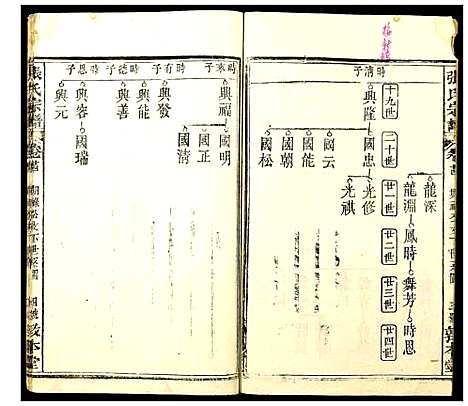 張氏宗譜
時清子
十九世
二十世
廿一世
廿二世
廿三世
廿四世
興隆
國忠
國云
國能
國朝
國松
光修
光祺
龍深
龍淵
鳳時
舞芳
時恩
敦本堂
時來子
時有子
時德子
時恩子
興福
國明
國正
國清
興發
興能
興善
興容
國瑞
興元
張氏宗譜
敦本堂